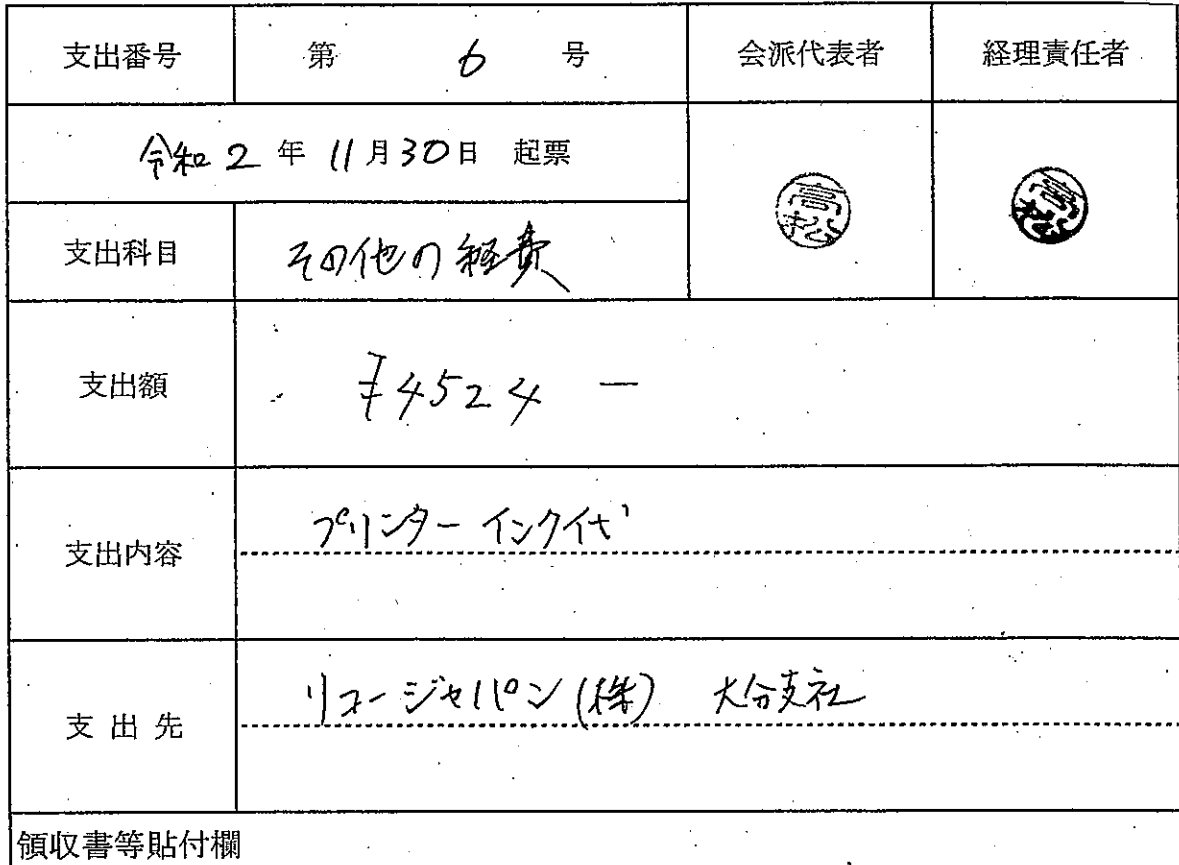 支出番号 第 6 号 会派代表者 経理責任者
令和 2 年 11月30日 起票
高松 高松
支出科目 その他の経費
支出額 ¥4524 ー
支出内容 プリンターインク代
支出先 リコージャパン(株) 大分支社
領収書等貼付欄